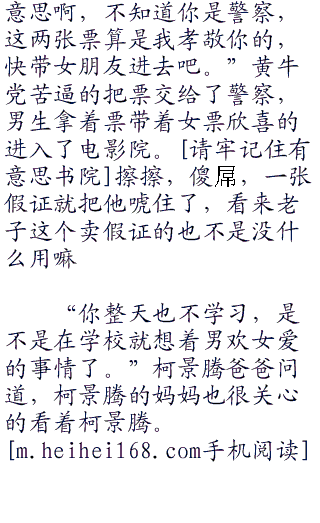 意思啊，不知道你是警察，
这两张票算是我孝敬你的，
快带女朋友进去吧。”黄牛
党苦逼的把票交给了警察，
男生拿着票带着女票欣喜的
进入了电影院。[请牢记住有
意思书院]擦擦，傻屌，一张
假证就把他唬住了，看来老
子这个卖假证的也不是没什
么用嘛
“你整天也不学习，是
不是在学校就想着男欢女爱
的事情了。”柯景腾爸爸问
道，柯景腾的妈妈也很关心
的看着柯景腾。
[m.heihei168.com手机阅读]